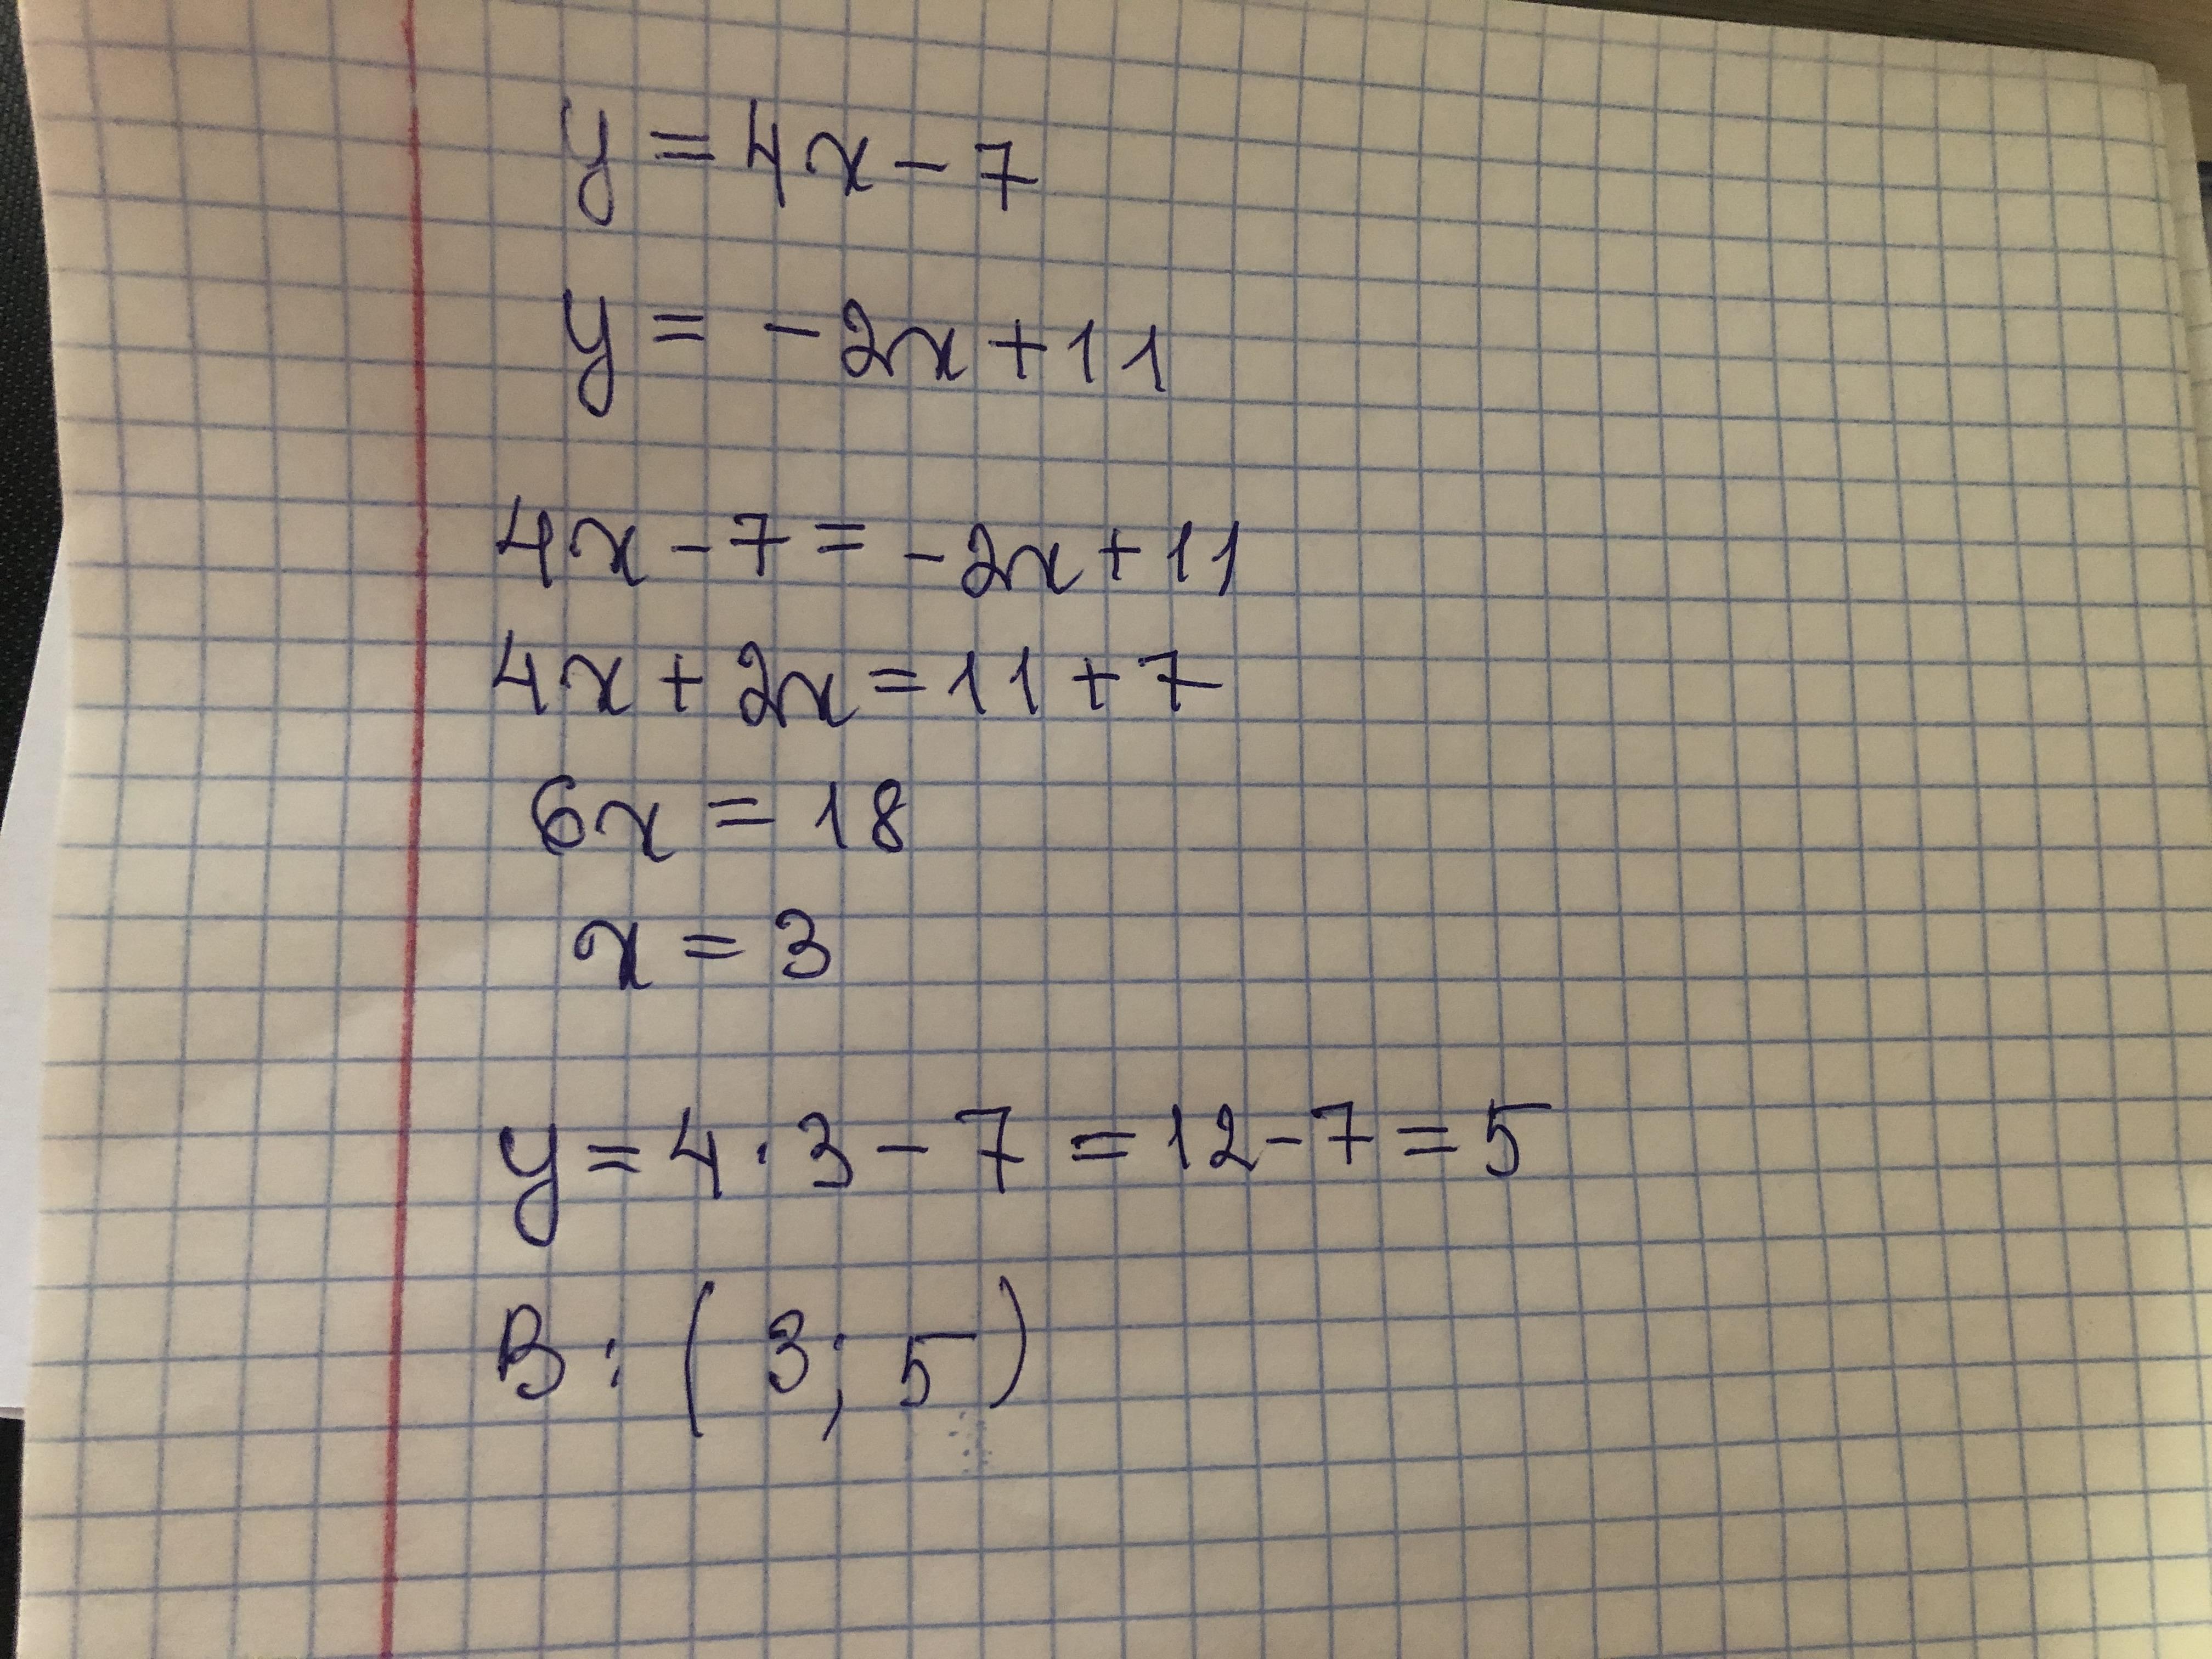 y = 4x - 7
y = -2x + 11
4x - 7 = -2x + 11
4x + 2x = 11 + 7
6x = 18
x = 3
y = 4 · 3 - 7 = 12 - 7 = 5
В: (3; 5)